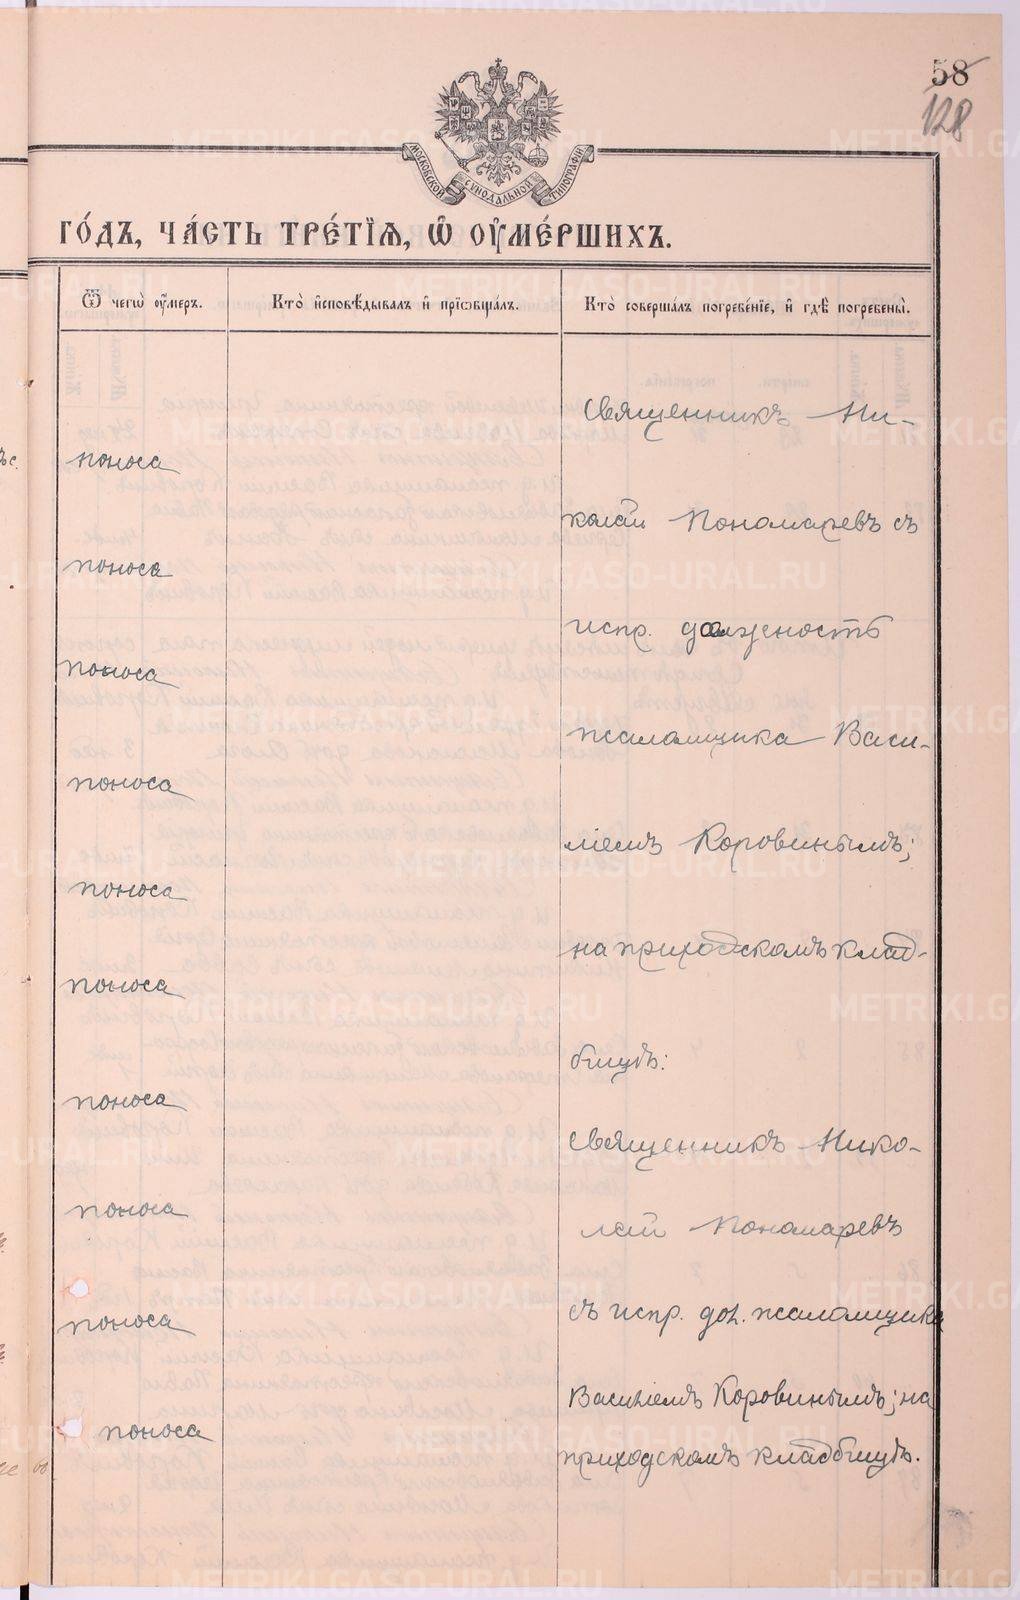 58
128
МОСКОВСКОЙ СѴНОДАЛЬНОЙ ТИПОГРАФІИ
ГО́ДЪ, ЧА́СТЬ ТРЕ́ТЇѦ, Ѡ҆ ОУ҆МЕ́РШИХЪ.
Ѿ чегѡ̀ оу҆́меръ.
Кто̀ и҆сповѣ́дывалъ и҆ прїѡбща́лъ.
Кто̀ соверша́лъ погребе́нїе, и҆ гдѣ̀ погребены̀.
Священникъ Ни-
поноса
колай Пономаревъ съ
поноса
испр. должность
поноса
псаломщика Васи-
поноса
ліемъ Коровинымъ;
поноса
на приходскомъ клад-
поноса
бищѣ:
поноса
Священникъ Нико-
поноса
лай Пономаревъ
съ испр. дол. псаломщика
поноса
Василіемъ Коровинымъ; на
поноса
приходскомъ кладбищѣ.
METRIKI.GASO-URAL.RU